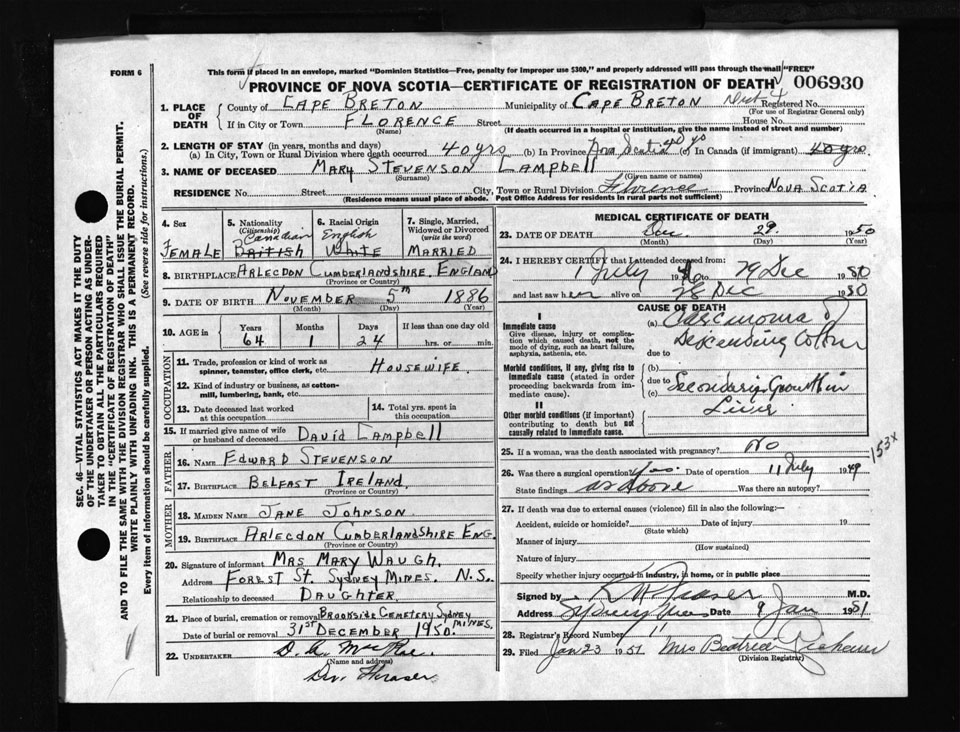 FORM 6
This form if placed in an envelope, marked "Dominion Statistics—Free, penalty for improper use $300," and properly addressed will pass through the mail "FREE"
PROVINCE OF NOVA SCOTIA—CERTIFICATE OF REGISTRATION OF DEATH 006930
1. PLACE OF DEATH
County of CAPE BRETON Municipality of CAPE BRETON Registered No.
(For use of Registrar General only)
If in City or Town FLORENCE Street House No.
(Name) (If death occurred in a hospital or institution, give the name instead of street and number)
2. LENGTH OF STAY (in years, months and days)
(a) In City, Town or Rural Division where death occurred 40 yrs (b) In Province Nova Scotia 40 yrs (c) In Canada (if immigrant) 40 yrs.
3. NAME OF DECEASED MARY STEVENSON CAMPBELL
(Surname) (Given name or names)
RESIDENCE No. Street City, Town or Rural Division Florence Province NOVA SCOTIA
(Residence means usual place of abode. Post Office Address for residents in rural parts not sufficient)
4. Sex
FEMALE
5. Nationality
(Citizenship)
Canadian
British
6. Racial Origin
English
White
7. Single, Married, Widowed or Divorced
(write the word)
MARRIED
8. BIRTHPLACE ARLECDON CUMBERLANDSHIRE, ENGLAND
(Province or Country)
9. DATE OF BIRTH NOVEMBER 5th 1886
(Month) (Day) (Year)
10. AGE in Years Months Days If less than one day old
64 1 24 hrs. or min.
OCCUPATION
11. Trade, profession or kind of work as spinner, teamster, office clerk, etc. HOUSEWIFE.
12. Kind of industry or business, as cotton-mill, lumbering, bank, etc.
13. Date deceased last worked at this occupation
14. Total yrs. spent in this occupation
15. If married give name of wife or husband of deceased DAVID CAMPBELL
FATHER
16. NAME EDWARD STEVENSON
17. BIRTHPLACE BELFAST IRELAND
(Province or Country)
MOTHER
18. MAIDEN NAME JANE JOHNSON.
19. BIRTHPLACE ARLECDON CUMBERLANDSHIRE ENG.
(Province or Country)
20. Signature of informant MRS MARY WAUGH.
Address FOREST ST. SYDNEY MINES. N.S.
Relationship to deceased DAUGHTER.
21. Place of burial, cremation or removal BROOKSIDE CEMETERY SYDNEY MINES.
Date of burial or removal 31ST DECEMBER 1950.
22. UNDERTAKER
(Name and address)
MEDICAL CERTIFICATE OF DEATH
23. DATE OF DEATH Dec 29 1950
(Month) (Day) (Year)
24. I HEREBY CERTIFY that I attended deceased from:
1 July to 29 Dec 1950
and last saw her alive on 28 Dec 1950
CAUSE OF DEATH
I
Immediate cause
Give disease, injury or complication which caused death, not the mode of dying, such as heart failure, asphyxia, asthenia, etc.
(a) Carcinoma of Descending Colon
due to
Morbid conditions, if any, giving rise to immediate cause (stated in order proceeding backwards from immediate cause).
(b)
due to
(c) Secondary Growth in Liver
II
Other morbid conditions (if important) contributing to death but not causally related to immediate cause.
153x
25. If a woman, was the death associated with pregnancy? No
26. Was there a surgical operation? Yes. Date of operation 11 July 1949
State findings as above Was there an autopsy?
27. If death was due to external causes (violence) fill in also the following:—
Accident, suicide or homicide? Date of injury 19
(State which)
Manner of injury
(How sustained)
Nature of injury
Specify whether injury occurred in industry, in home, or in public place
Signed by Fraser M.D.
Address Sydney Mines Date 9 Jan 1951
28. Registrar's Record Number 11
29. Filed Jan 23 1951 Mrs Beatrice Graham
(Division Registrar)
SEC. 46—VITAL STATISTICS ACT MAKES IT THE DUTY
OF THE UNDERTAKER OR PERSON ACTING AS UNDER-
TAKER TO OBTAIN ALL THE PARTICULARS REQUIRED
IN THE "CERTIFICATE OF REGISTRATION OF DEATH"
AND TO FILE THE SAME WITH THE DIVISION REGISTRAR WHO SHALL ISSUE THE BURIAL PERMIT.
WRITE PLAINLY WITH UNFADING INK. THIS IS A PERMANENT RECORD.
Every item of information should be carefully supplied. (See reverse side for instructions.)